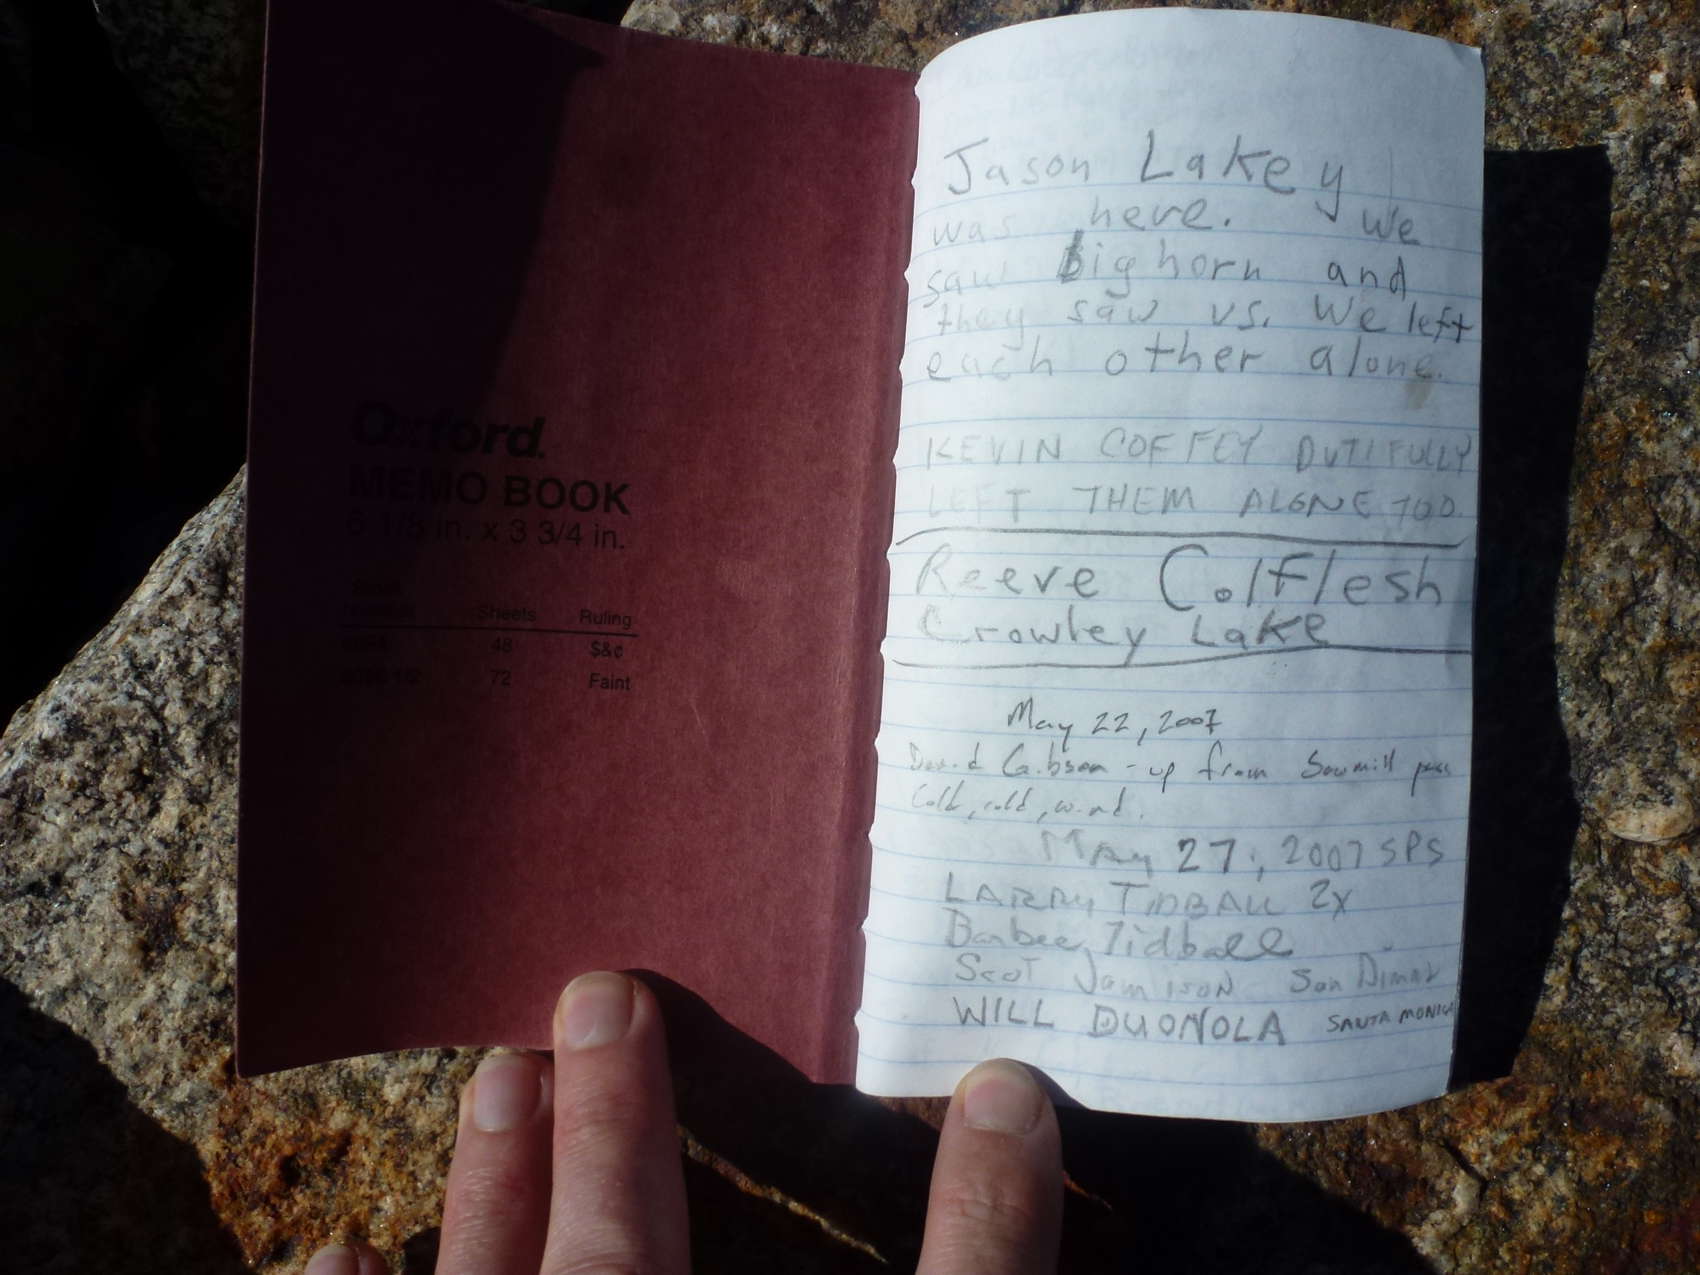 Oxford.
MEMO BOOK
6 1/8 in. x 3 3/4 in.
Sheets Ruling
48 $&¢
72 Faint
Jason Lakey
was here. We
saw bighorn and
they saw us. We left
each other alone.
KEVIN COFFEY DUTIFULLY
LEFT THEM ALONE TOO.
Reeve Colflesh
Crowley Lake
May 22, 2007
David Gibson - up from Sawmill pass
Cold, cold, wind.
May 27, 2007 SPS
LARRY TIDBALL 2x
Barbee Tidball
Scot Jamison San Dimas
WILL DUONOLA SANTA MONICA